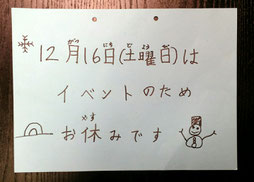 12月16日(土曜日)は
イベントのため
お休みです